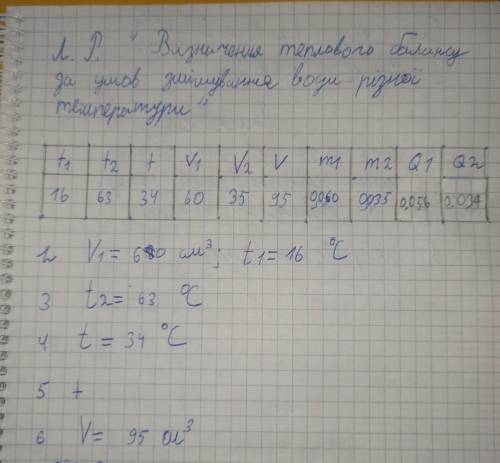 Л. Р. " Визначення теплового балансу
за умов змішування води різної
температури"
t1 t2 t V1 V2 V m1 m2 Q1 Q2
16 63 34 60 35 95 0,060 0,035 0,056 0,034
2 V1 = 60 см³; t1 = 16 °C
3 t2 = 63 °C
4 t = 34 °C
5 +
6 V = 95 см³